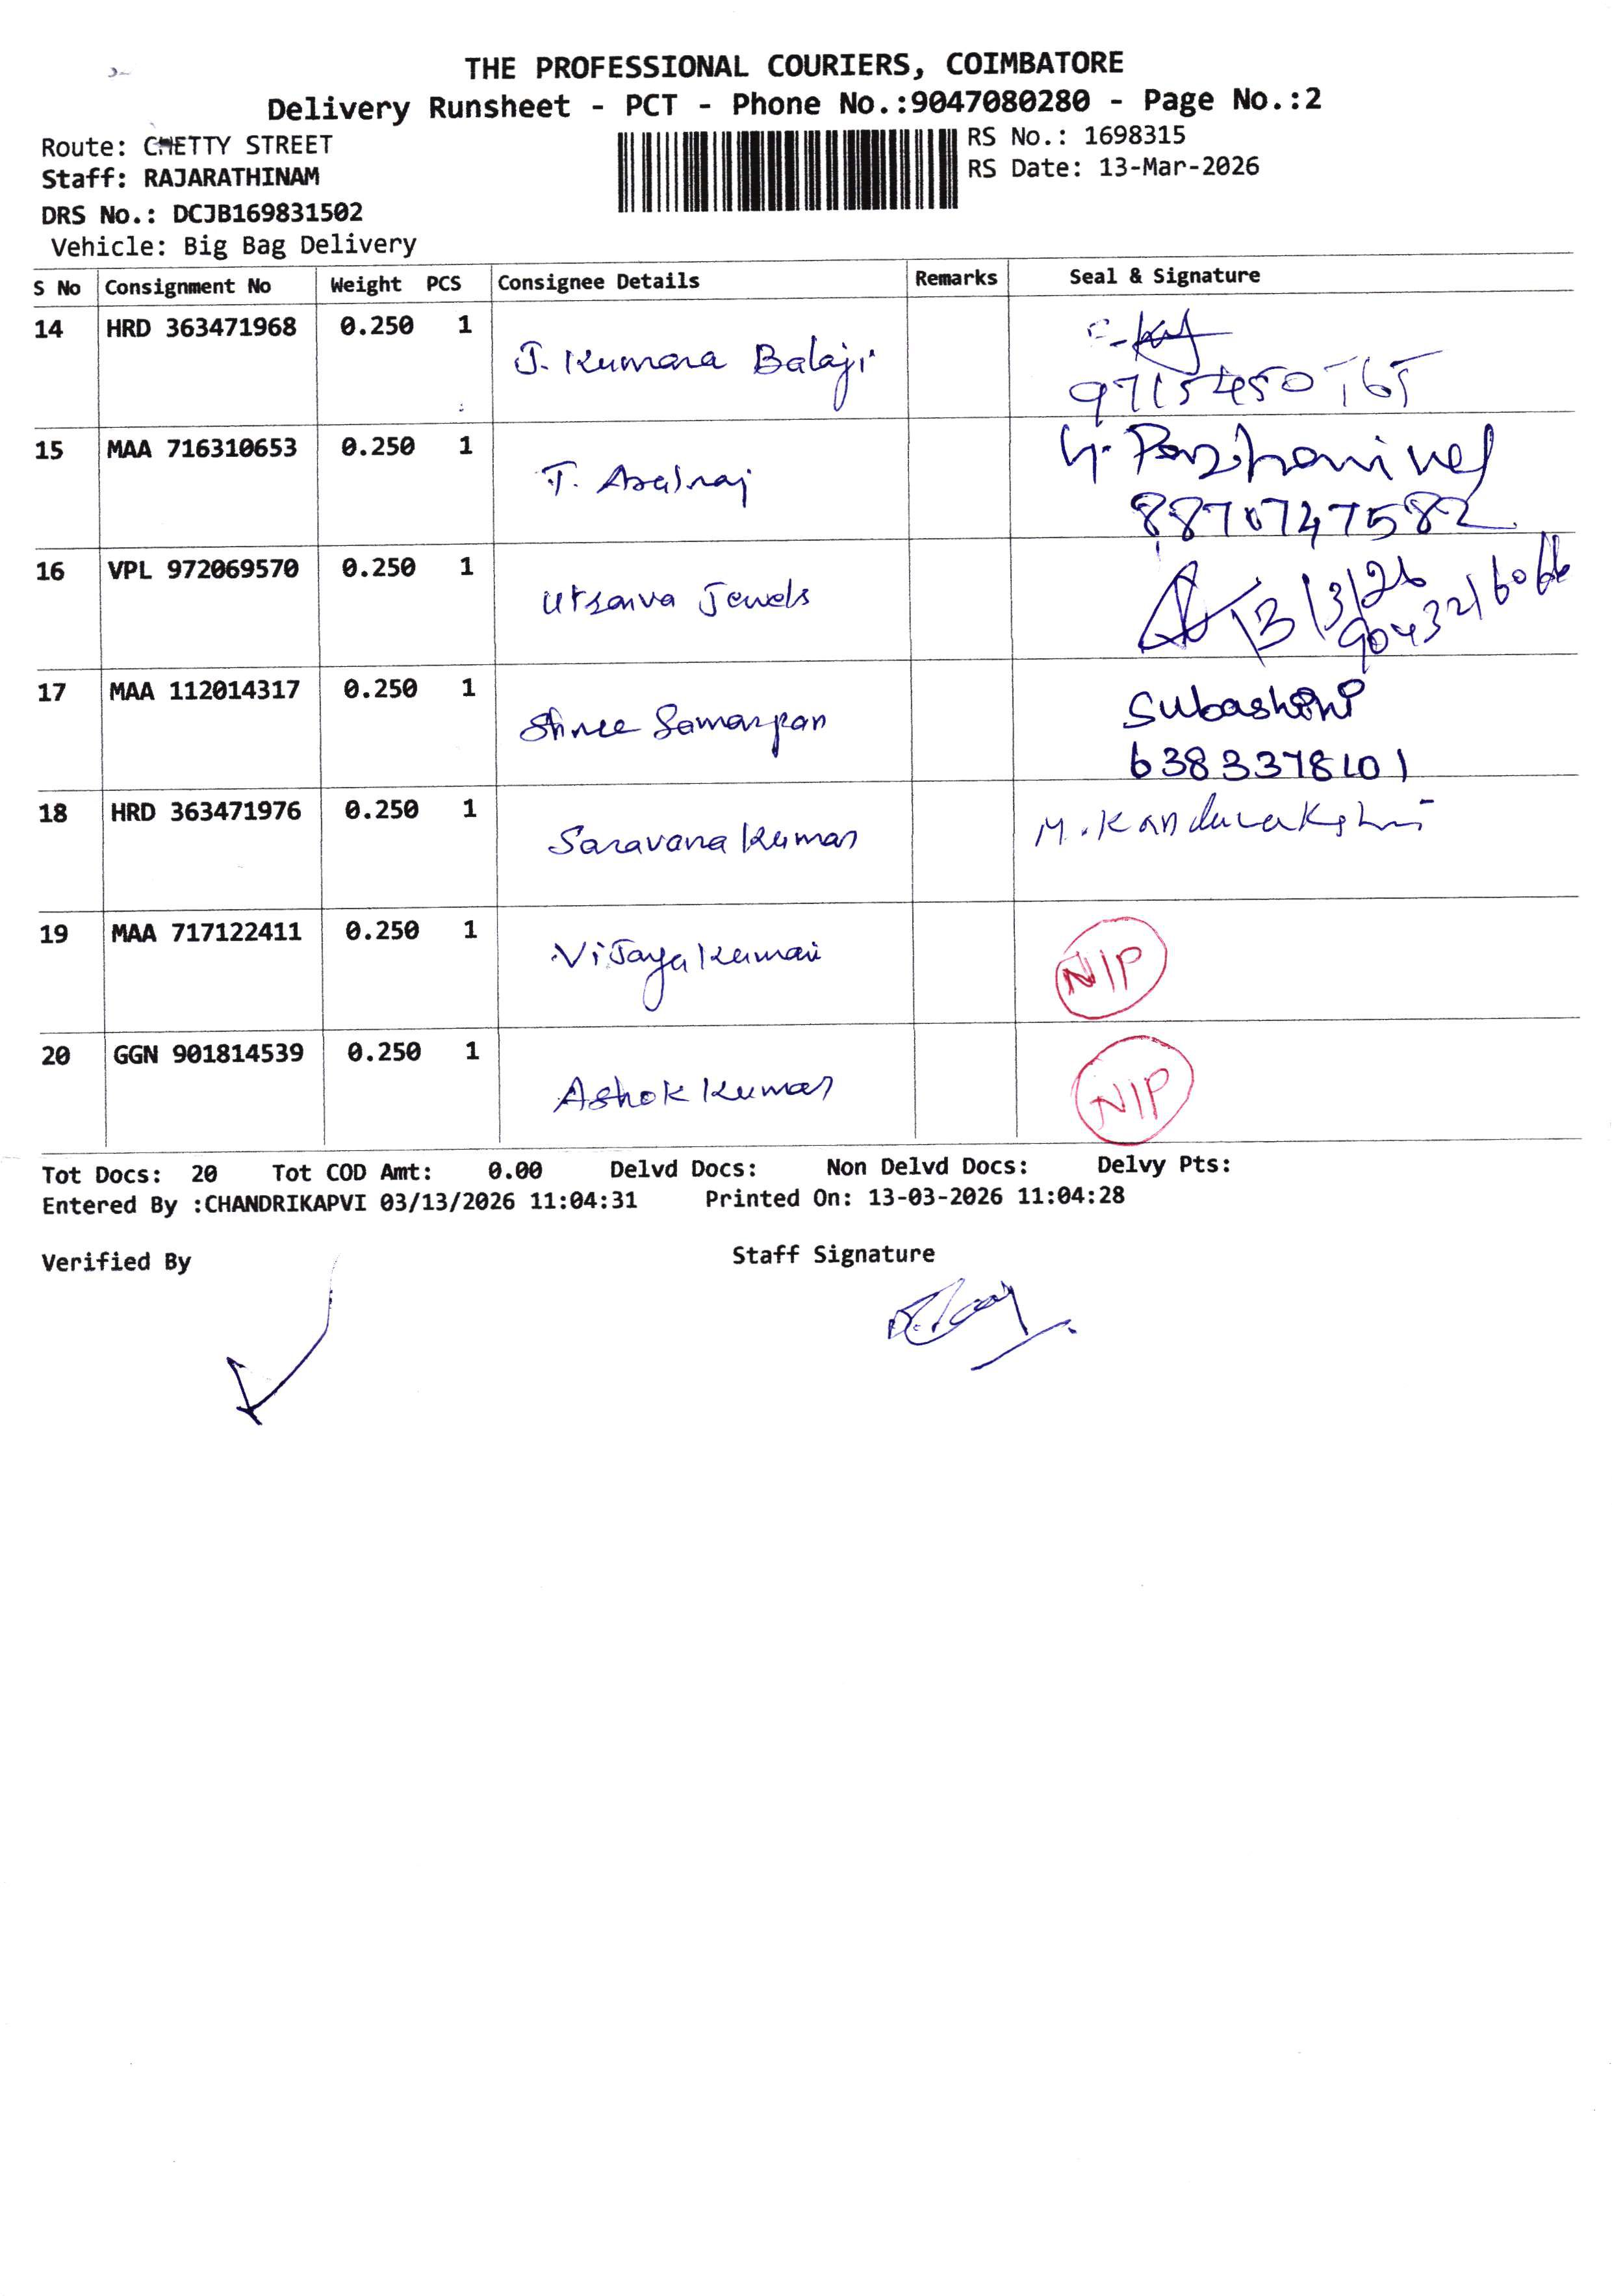 THE PROFESSIONAL COURIERS, COIMBATORE
Delivery Runsheet - PCT - Phone No.:9047080280 - Page No.:2
Route: CHETTY STREET
Staff: RAJARATHINAM
DRS No.: DCJB169831502
Vehicle: Big Bag Delivery
RS No.: 1698315
RS Date: 13-Mar-2026
S No Consignment No Weight PCS Consignee Details Remarks Seal & Signature
14 HRD 363471968 0.250 1 J. Kumara Balaji
15 MAA 716310653 0.250 1 T.
8870747582
16 VPL 972069570 0.250 1 Utsava Jewels 13/3/26
17 MAA 112014317 0.250 1 Shree Samarpan Subashini
6383378101
18 HRD 363471976 0.250 1 Saravana Kumar M.
19 MAA 717122411 0.250 1 VijayaKumari N/P
20 GGN 901814539 0.250 1 Ashok Kumar N/P
Tot Docs: 20 Tot COD Amt: 0.00 Delvd Docs: Non Delvd Docs: Delvy Pts:
Entered By :CHANDRIKAPVI 03/13/2026 11:04:31 Printed On: 13-03-2026 11:04:28
Verified By Staff Signature